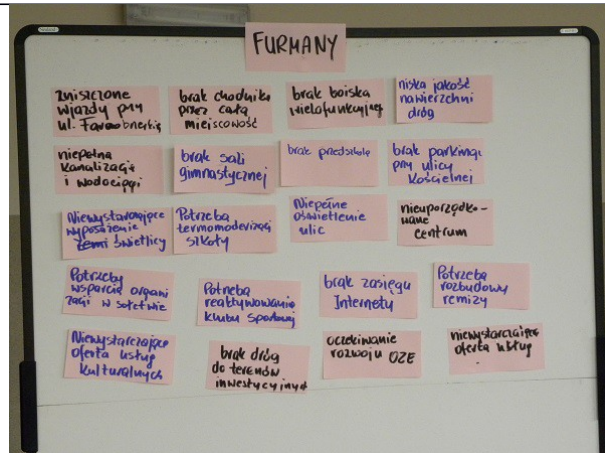 FURMANY
zniszczone
wjazdy przy
ul.
brak chodnika
przez całą
miejscowość
brak boiska
wielofunkcyjnego
niska jakość
nawierzchni
dróg
niepełna
kanalizacja
i wodociągi
brak sali
gimnastycznej
brak przedszkola
brak parkingu
przy ulicy
Kościelnej
Niewystarczające
wyposażenie
świetlicy
Potrzeba
termomodernizacji
szkoły
Niepełne
oświetlenie
ulic
nieuporządko-
wane
centrum
Potrzeby
wsparcia organi
zacji w sołectwie
Potrzeba
reaktywowania
klubu sportowej
brak zasięgu
Internetu
Potrzeba
rozbudowy
remizy
Niewystarczająca
oferta usług
kulturalnych
brak dróg
do terenów
inwestycyjnych
oczekiwanie
rozwoju OZE
niewystarczająca
oferta usług